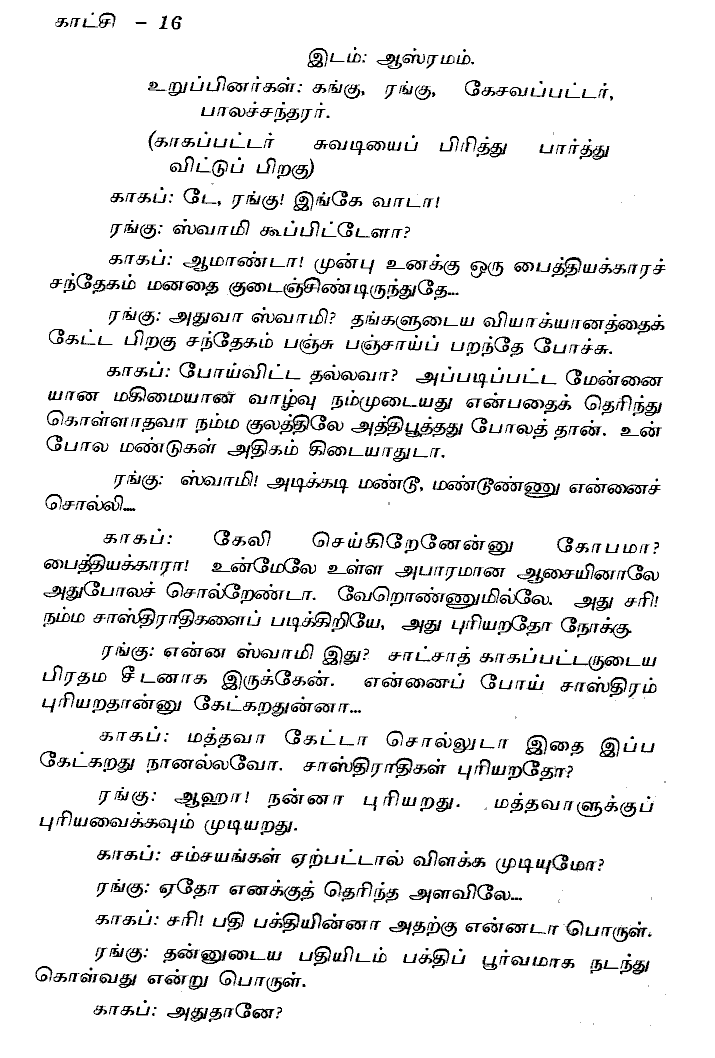 காட்சி – 16
இடம்: ஆஸ்ரமம்.
உறுப்பினர்கள்: கங்கு, ரங்கு, கேசவப்பட்டர்,
பாலச்சந்தரர்.
(காகப்பட்டர் சுவடியைப் பிரித்து பார்த்து
விட்டுப் பிறகு)
காகப்: டே, ரங்கு! இங்கே வாடா!
ரங்கு: ஸ்வாமி கூப்பிட்டேளா?
காகப்: ஆமாண்டா! முன்பு உனக்கு ஒரு பைத்தியக்காரச்
சந்தேகம் மனதை குடைஞ்சிண்டிருந்துதே...
ரங்கு: அதுவா ஸ்வாமி? தங்களுடைய வியாக்யானத்தைக்
கேட்ட பிறகு சந்தேகம் பஞ்சு பஞ்சாய்ப் பறந்தே போச்சு.
காகப்: போய்விட்ட தல்லவா? அப்படிப்பட்ட மேன்னை
யான மகிமையான வாழ்வு நம்முடையது என்பதைக் தெரிந்து
கொள்ளாதவா நம்ம குலத்திலே அத்திபூத்தது போலத் தான். உன்
போல மண்டுகள் அதிகம் கிடையாதுடா.
ரங்கு: ஸ்வாமி! அடிக்கடி மண்டூ, மண்டூண்ணு என்னைச்
சொல்லி....
காகப்: கேலி செய்கிறேனேன்னு கோபமா?
பைத்தியக்காரா! உன்மேலே உள்ள அபாரமான ஆசையினாலே
அதுபோலச் சொல்றேண்டா. வேறொண்ணுமில்லே. அது சரி!
நம்ம சாஸ்திராதிகளைப் படிக்கிறியே, அது புரியறதோ நோக்கு.
ரங்கு: என்ன ஸ்வாமி இது? சாட்சாத் காகப்பட்டருடைய
பிரதம சீடனாக இருக்கேன். என்னைப் போய் சாஸ்திரம்
புரியறதான்னு கேட்கறதுன்னா...
காகப்: மத்தவா கேட்டா சொல்லுடா இதை இப்ப
கேட்கறது நானல்லவோ. சாஸ்திராதிகள் புரியறதோ?
ரங்கு: ஆஹா! நன்னா புரியறது. மத்தவாளுக்குப்
புரியவைக்கவும் முடியறது.
காகப்: சம்சயங்கள் ஏற்பட்டால் விளக்க முடியுமோ?
ரங்கு: ஏதோ எனக்குத் தெரிந்த அளவிலே...
காகப்: சரி! பதி பக்தியின்னா அதற்கு என்னடா பொருள்.
ரங்கு: தன்னுடைய பதியிடம் பக்திப் பூர்வமாக நடந்து
கொள்வது என்று பொருள்.
காகப்: அதுதானே?